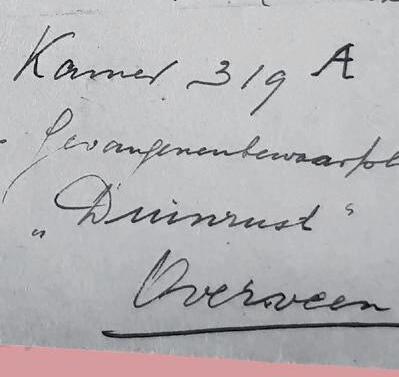 Kamer 319 A
Gevangenenbewaarpl
„Duinrust“
Overveen